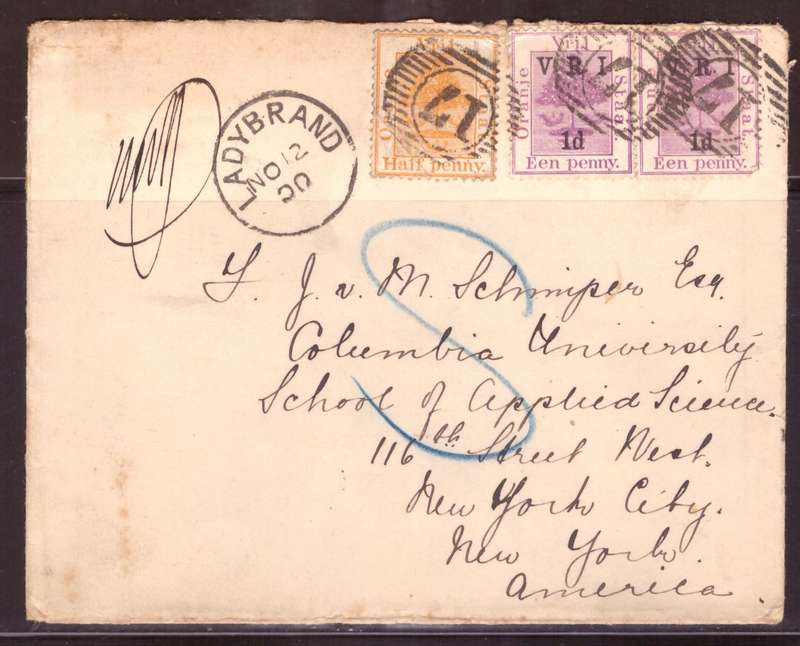 LADYBRAND
NO 12
00
Oranje Vrij Staat.
Half penny.
17
Oranje Vrij Staat
V R I
1d
Een penny.
Staat.
V R. I
1d
Een penny.
17
S
Y. J. v. M. Schimper Esq.
Columbia University
School of Applied Science.
116th Street West.
New York City.
New York.
America.